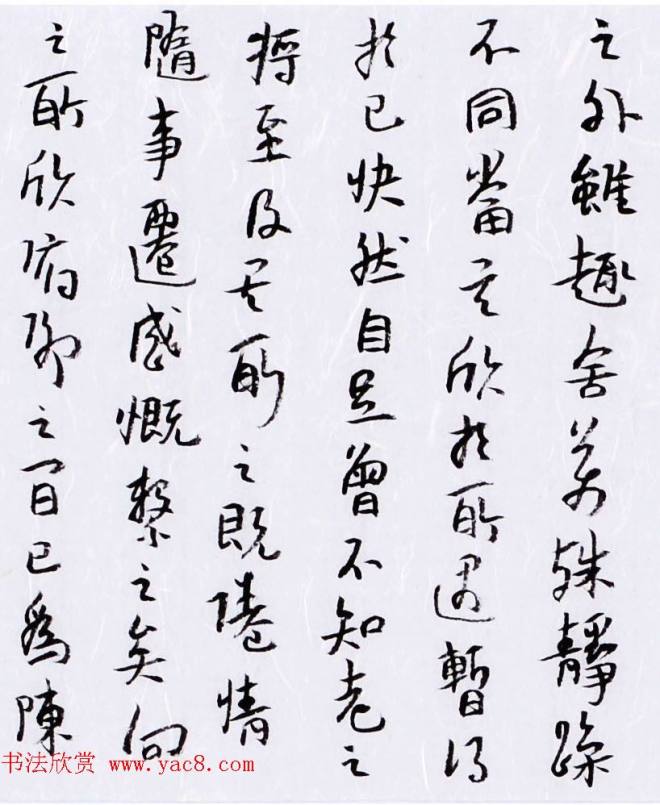 之外雖趣舍万殊靜躁
不同當其欣於所遇暫得
於己快然自足曾不知老之
將至及其所之既惓情
隨事遷感慨繫之矣向
之所欣俛仰之間已為陳
书法欣赏 www.yac8.com